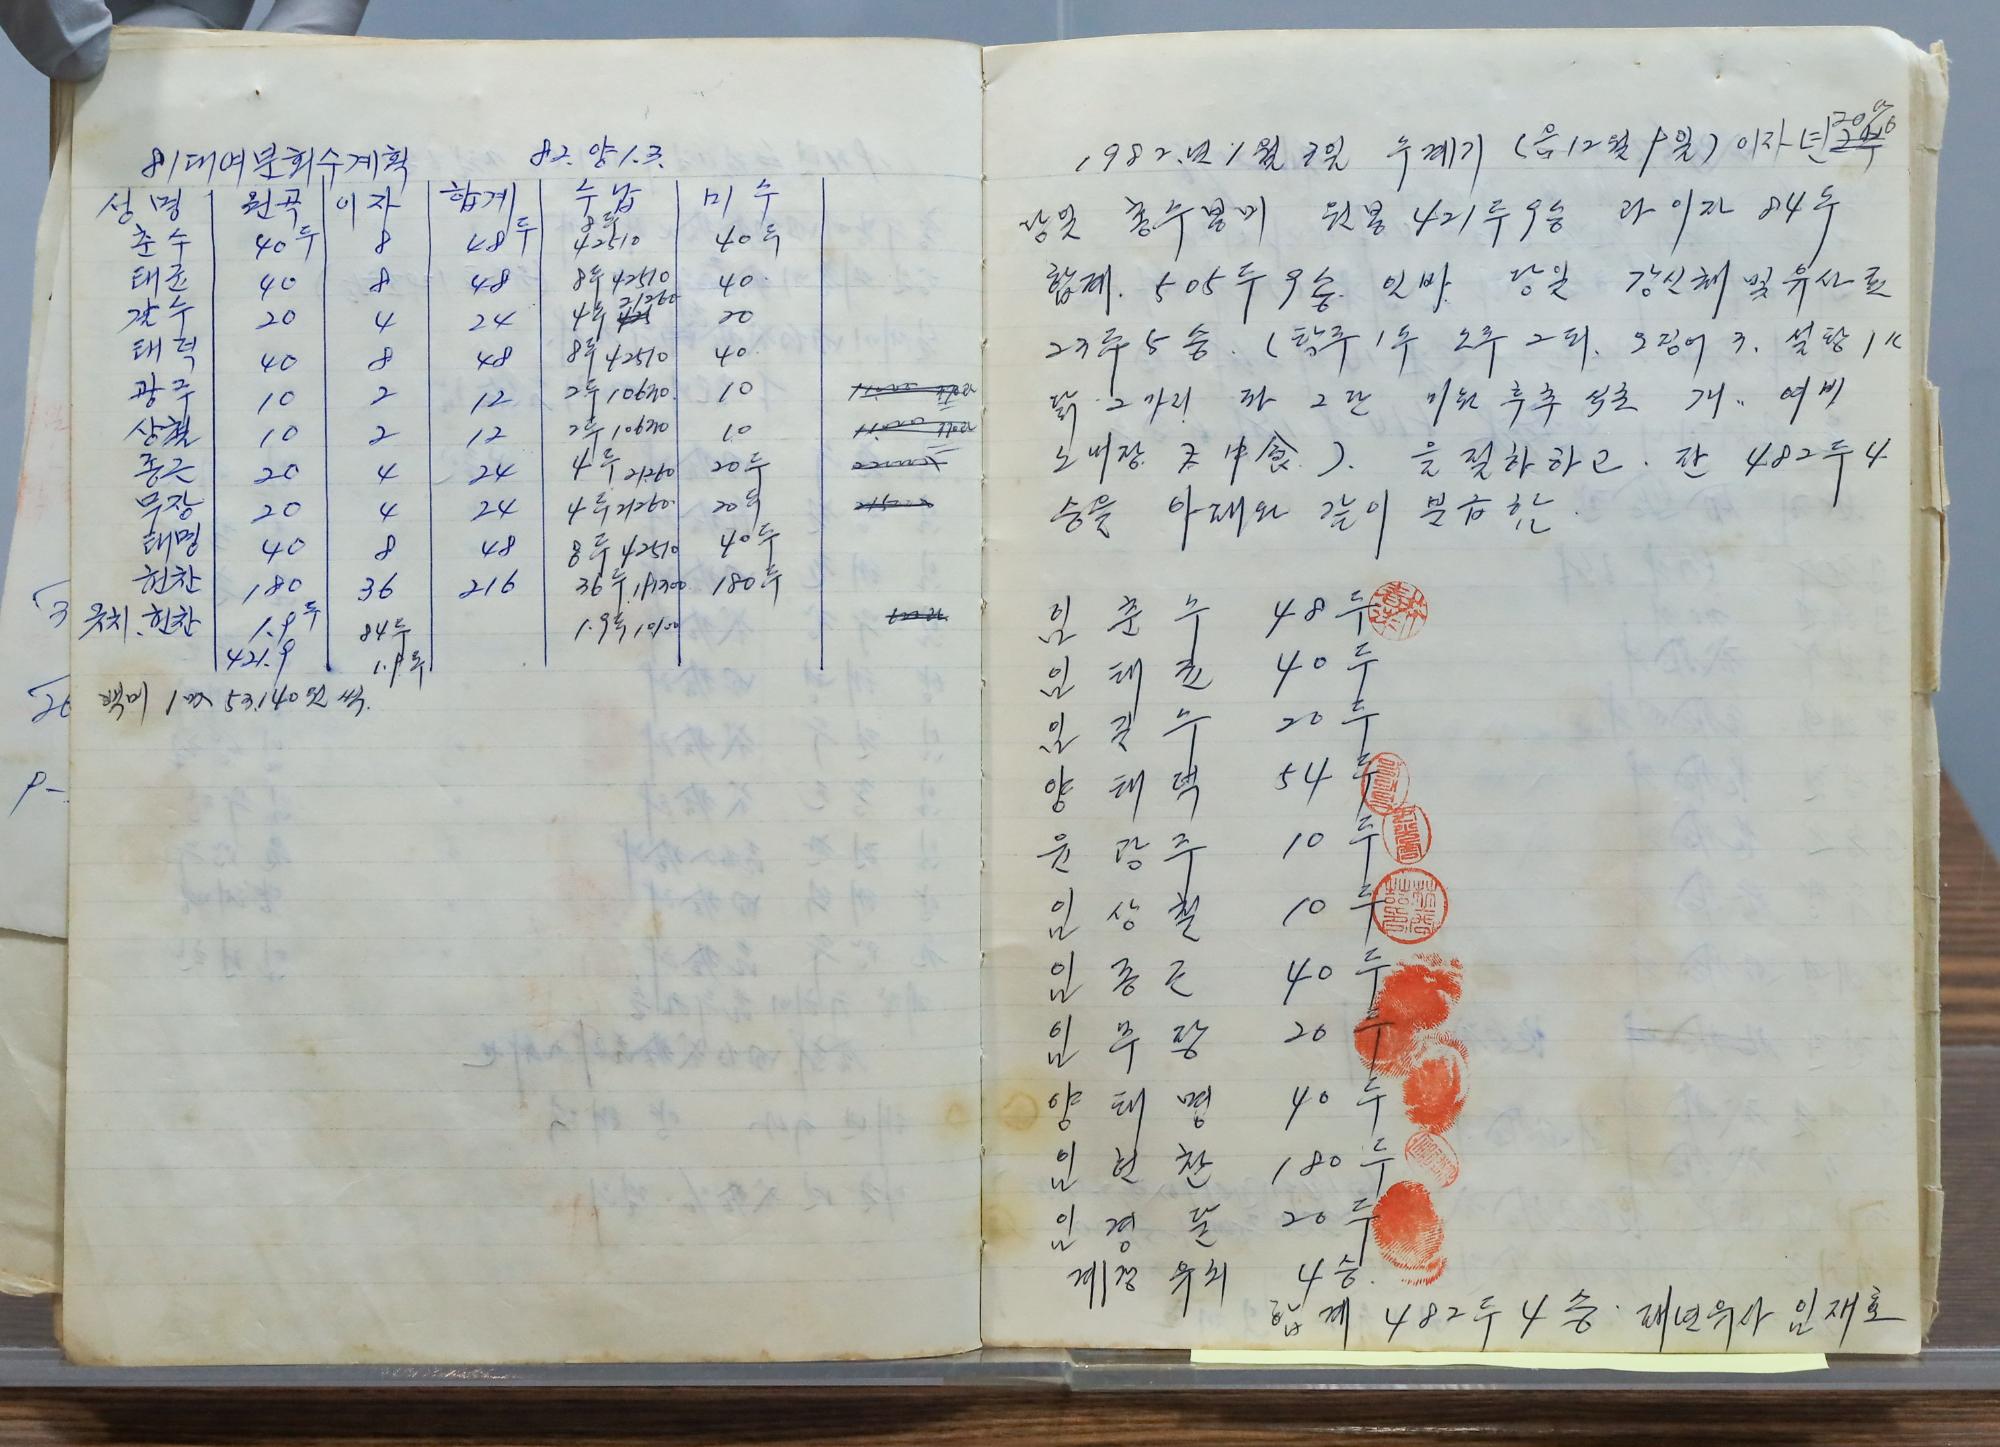 81대여분회수계획 82. 양1.3.
성명 원곡 이자 합계 수납 미수
춘수 40두 8 48두 8두 42510 40두
태준 40 8 48 8두 42510 40.
갑수 20 4 24 4두 21260 20
태덕 40 8 48 8두 42510 40.
광주 10 2 12 2두 10630. 10
상철 10 2 12 2두 10630 10
종근 20 4 24 4두 21260 20두
무장 20 4 24 4두 21260 20두
태명 40 8 48 8두 42510 40두
현찬 180 36 216 36두 180두
유치. 현찬 1.9두 84두 1.9두 10100
421.9 1.9두
백미 1 53.140원 씩.
1982.년 1월 3일 수계기 (음12월 9일) 이자년
당일 총수봉미 원봉 421두9승 과 이자 84두
합계. 505두 9승. 인바. 당일 강신채 및 유사료
23두 5승. (탁주 1두 소주 2되. 오징어 3. 설탕 1K
닭 2가리 파 2단 미원 후추 여비
中食.). 을 절하하고. 잔 482두4
승을 아래와 같이 분급함.
임춘수 48두
임태준 40두
임갑수 20두
양태덕 54두
윤광주 10두
임상철 10두
임종근 40두
임무장 20두
양태명 40두
임현찬 180두
임경달 20두
계장유치 4승.
합계 482두 4승. 래년유사 임재호